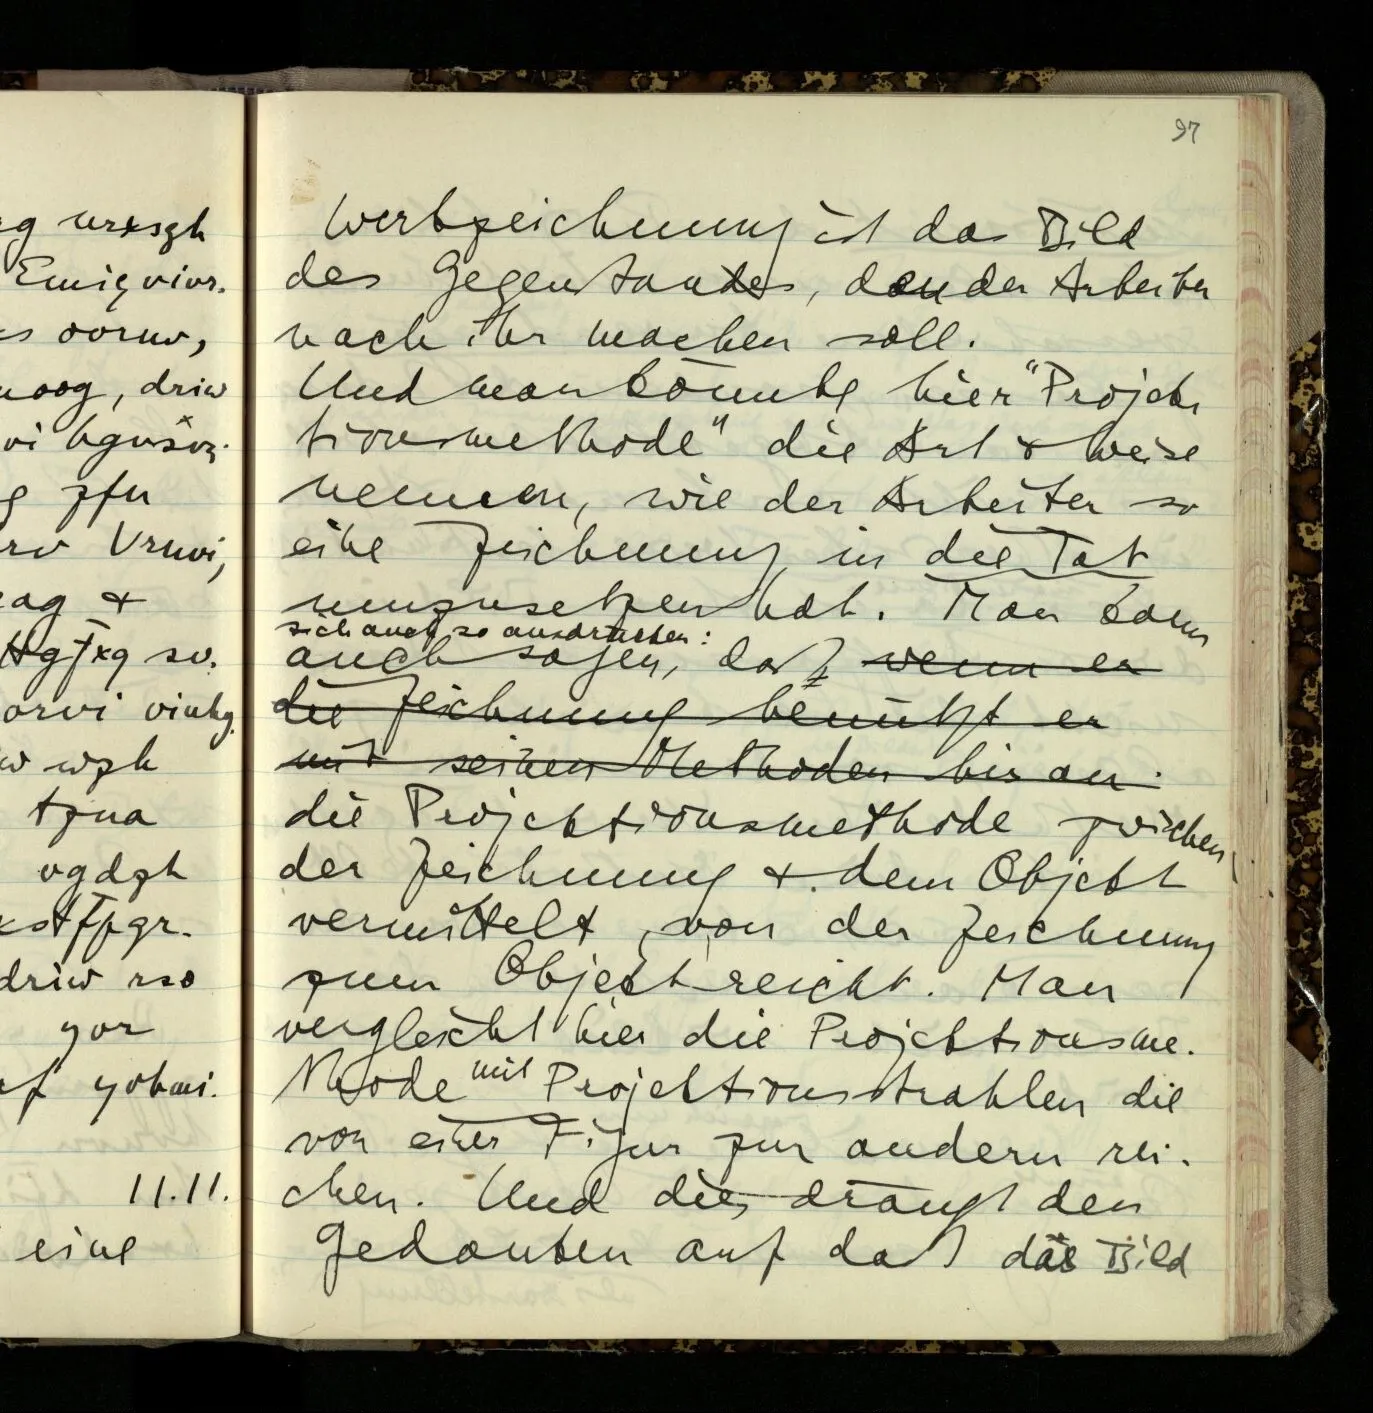 rg wrxsgh
Emigvivr.
s oornw,
noog, driw
vi hgwšvg.
g zfu
rv Vrnvi,
ag +
sv.
orvi vinhg
w wzh
tzna
vgdzh
driw rso
yor
f yohmi.
11.11.
eine
97
Werkzeichnung ist das Bild
des Gegenstandes, den der Arbeiter
nach ihr machen soll.
Und man könnte hier "Projek
tionsmethode" die Art & Weise
nennen, wie der Arbeiter so
eine Zeichnung in die Tat
umzusetzen hat. Man kann
sich auch so ausdrücken:
auch sagen, daß wenn er
die Zeichnung benützt er
mit seinen Methoden bis an
die Projektionsmethode zwichen
der Zeichnung & dem Objekt
vermittelt, von der Zeichnung
zum Objekt reicht. Man
vergleicht hier die Projektionsme.
thode mit Projektionsstrahlen die
von einer Figur zur andern rei.
chen. Und dies drängt den
Gedanken auf daß das Bild